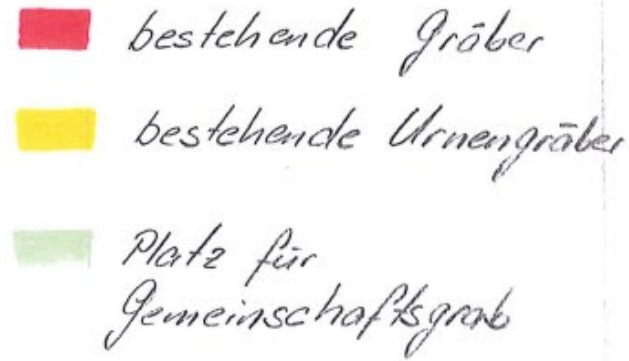 bestehende Gräber
bestehende Urnengräber
Platz für
Gemeinschaftsgrab